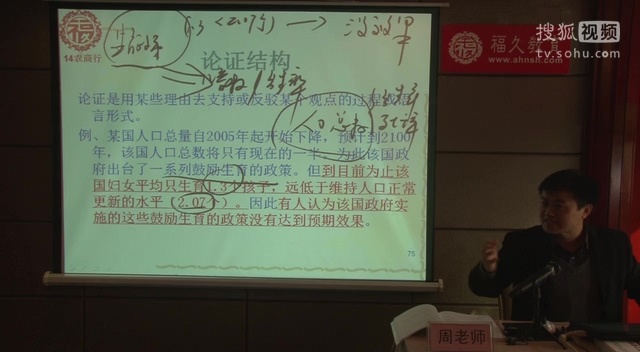 搜狐视频
tv.sohu.com
福久教育
www.ahnsh.com
福久
14农商行
1.3 < 2.07 → 没效果
论证结构
人口总数
论证是用某些理由去支持或反驳某个观点的过程或语
言形式。
例、某国人口总量自2005年起开始下降，预计到2100
年，该国人口总数将只有现在的一半。为此该国政
府出台了一系列鼓励生育的政策。但到目前为止该
国妇女平均只生育1.3个孩子，远低于维持人口正常
更新的水平（2.07个）。因此有人认为该国政府实
施的这些鼓励生育的政策没有达到预期效果。
75
周老师